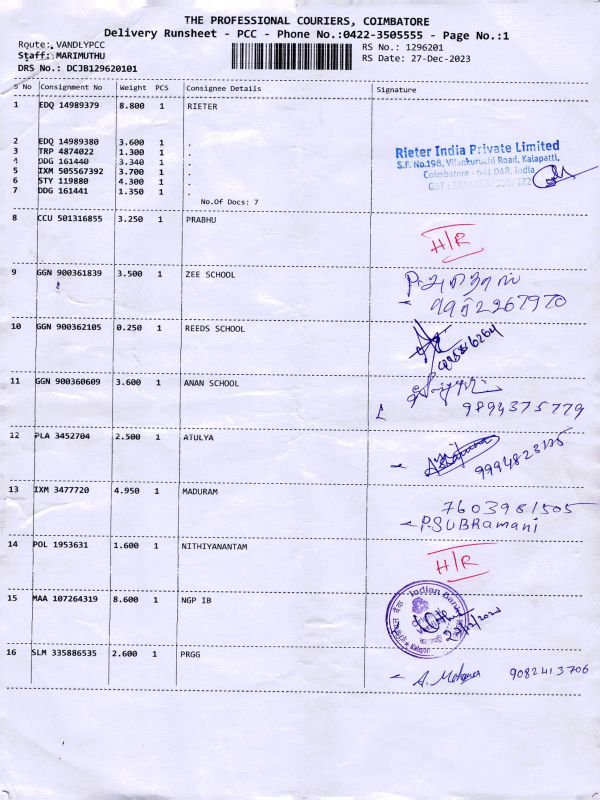 THE PROFESSIONAL COURIERS, COIMBATORE
Delivery Runsheet - PCC - Phone No.:0422-3505555 - Page No.:1
Route: VANDLYPCC RS No.: 1296201
Staff: MARIMUTHU RS Date: 27-Dec-2023
DRS No.: DCJB129620101
S No Consignment No Weight PCS Consignee Details Signature
1 EDQ 14989379 8.800 1 RIETER
2 EDQ 14989380 3.600 1 .
3 TRP 4874022 1.300 1 .
4 DDG 161440 3.340 1 .
5 IXM 505567392 3.700 1 .
6 STY 119880 4.300 1 .
7 DDG 161441 1.350 1 .
No.Of Docs: 7
Rieter India Private Limited
S.F. No.198, Vilankuruchi Road, Kalapatti,
Coimbatore - 641 048, India
GST :
8 CCU 501316855 3.250 1 PRABHU
H/R
9 GGN 900361839 3.500 1 ZEE SCHOOL
10 GGN 900362105 0.250 1 REEDS SCHOOL
11 GGN 900360609 3.600 1 ANAN SCHOOL
9894375779
12 PLA 3452704 2.500 1 ATULYA
13 IXM 3477720 4.950 1 MADURAM
7603981505
P.SUBRamani
14 POL 1953631 1.600 1 NITHIYANANTAM
H/R
15 MAA 107264319 8.600 1 NGP IB
Indian Bank
16 SLM 335886535 2.600 1 PRGG
9082413706